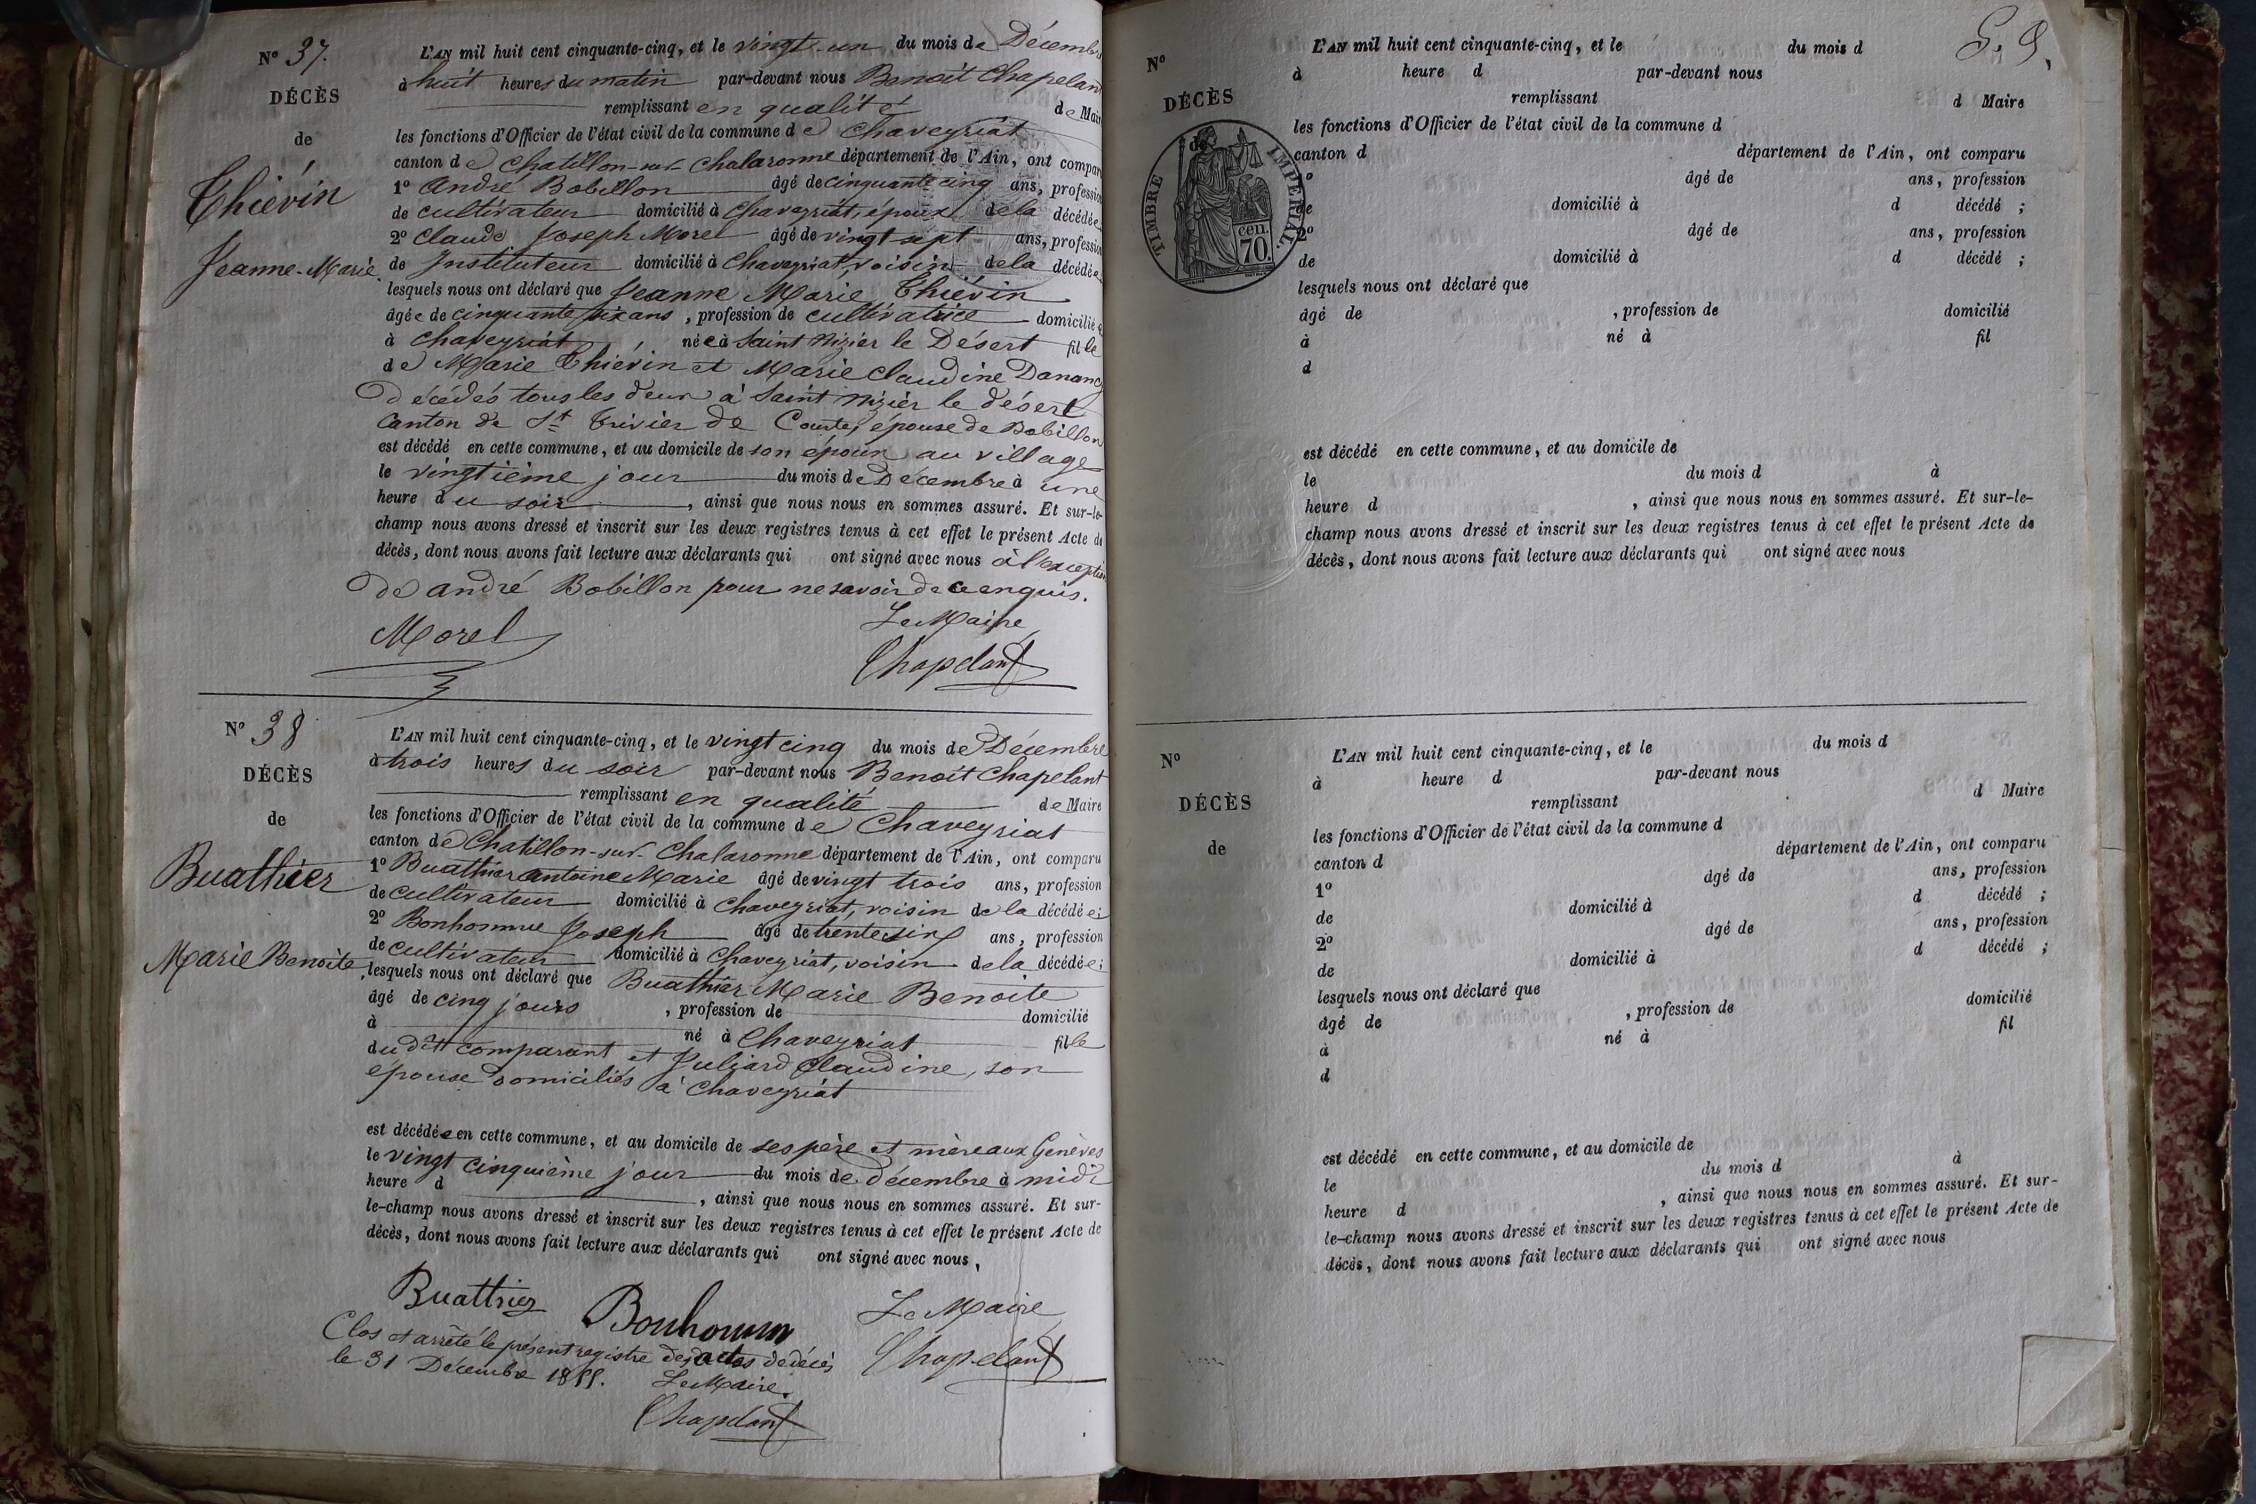 Nº 37.
DÉCÈS
de
Thiévin
Jeanne-Marie
L'AN mil huit cent cinquante-cinq, et le vingt-un du mois de Décembre
à huit heures du matin par-devant nous Benoit Chapelant
remplissant en qualité de Maire
les fonctions d'Officier de l'état civil de la commune de Chaveyriat
canton de Chatillon-sur-Chalaronne département de l'Ain, ont comparu
1º André Bobillon âgé de cinquante cinq ans, profession
de cultivateur domicilié à Chaveyriat, époux de la décédée
2º Claude Joseph Morel âgé de vingt sept ans, profession
de Instituteur domicilié à Chaveyriat, voisin de la décédée
lesquels nous ont déclaré que Jeanne Marie Thiévin
âgée de cinquante six ans, profession de cultivatrice domicilié
à Chaveyriat née à Saint Nizier le Désert fille
de Marie Thiévin et Marie Claudine Danancy
décédés tous les deux à Saint Nizier le désert
Canton de St Trivier de Courtes, épouse de Bobillon
est décédé en cette commune, et au domicile de son époux au village
le vingtième jour du mois de Décembre à une
heure du soir, ainsi que nous nous en sommes assuré. Et sur-le-
champ nous avons dressé et inscrit sur les deux registres tenus à cet effet le présent Acte de
décès, dont nous avons fait lecture aux déclarants qui ont signé avec nous à l'exception
de andré Bobillon pour ne savoir de ce enquis.
Morel
Le Maire
Chapelant
Nº 38
DÉCÈS
de
Buathier
Marie Benoite
L'AN mil huit cent cinquante-cinq, et le vingt cinq du mois de Décembre
à trois heures du soir par-devant nous Benoit Chapelant
remplissant en qualité de Maire
les fonctions d'Officier de l'état civil de la commune de Chaveyriat
canton de Chatillon-sur-Chalaronne département de l'Ain, ont comparu
1º Buathier antoine Marie âgé de vingt trois ans, profession
de cultivateur domicilié à Chaveyriat, voisin de la décédée;
2º Bonhomme Joseph âgé de trente six ans, profession
de cultivateur domicilié à Chaveyriat, voisin de la décédée;
lesquels nous ont déclaré que Buathier Marie Benoite
âgé de cinq jours, profession de domicilié
à né à Chaveyriat fille
du dit comparant et Juliard Claudine, son
épouse domiciliés à Chaveyriat
est décédée en cette commune, et au domicile de ses père et mère aux Genèves
le vingt cinquième jour du mois de décembre à midi
heure d , ainsi que nous nous en sommes assuré. Et sur-
le-champ nous avons dressé et inscrit sur les deux registres tenus à cet effet le présent Acte de
décès, dont nous avons fait lecture aux déclarants qui ont signé avec nous,
Buathier
Bonhomm
Le Maire
Chapelant
Clos et arrêté le présent registre des actes de décès
le 31 Décembre 1855.
Le Maire.
Chapelant
Nº
DÉCÈS
de
TIMBRE IMPERIAL.
cen.
70.
L'AN mil huit cent cinquante-cinq, et le du mois d
à heure d par-devant nous
remplissant d Maire
les fonctions d'Officier de l'état civil de la commune d
canton d département de l'Ain, ont comparu
1º âgé de ans, profession
de domicilié à d décédé ;
2º âgé de ans, profession
de domicilié à d décédé ;
lesquels nous ont déclaré que
âgé de , profession de domicilié
à né à fil
d
est décédé en cette commune, et au domicile de
le du mois d à
heure d , ainsi que nous nous en sommes assuré. Et sur-le-
champ nous avons dressé et inscrit sur les deux registres tenus à cet effet le présent Acte de
décès, dont nous avons fait lecture aux déclarants qui ont signé avec nous
Nº
DÉCÈS
de
L'AN mil huit cent cinquante-cinq, et le du mois d
à heure d par-devant nous
remplissant d Maire
les fonctions d'Officier de l'état civil de la commune d
canton d département de l'Ain, ont comparu
1º âgé de ans, profession
de domicilié à d décédé ;
2º âgé de ans, profession
de domicilié à d décédé ;
lesquels nous ont déclaré que
âgé de , profession de domicilié
à né à fil
d
est décédé en cette commune, et au domicile de
le du mois d à
heure d , ainsi que nous nous en sommes assuré. Et sur-
le-champ nous avons dressé et inscrit sur les deux registres tenus à cet effet le présent Acte de
décès, dont nous avons fait lecture aux déclarants qui ont signé avec nous